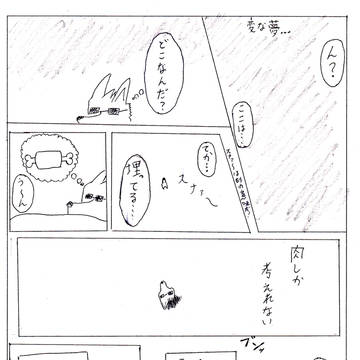 変な夢…
ん?
ここは…
どこなんだ?
てか…
スナァ〜
埋ってる…
う〜ん
肉しか
考えれない
ブンッ